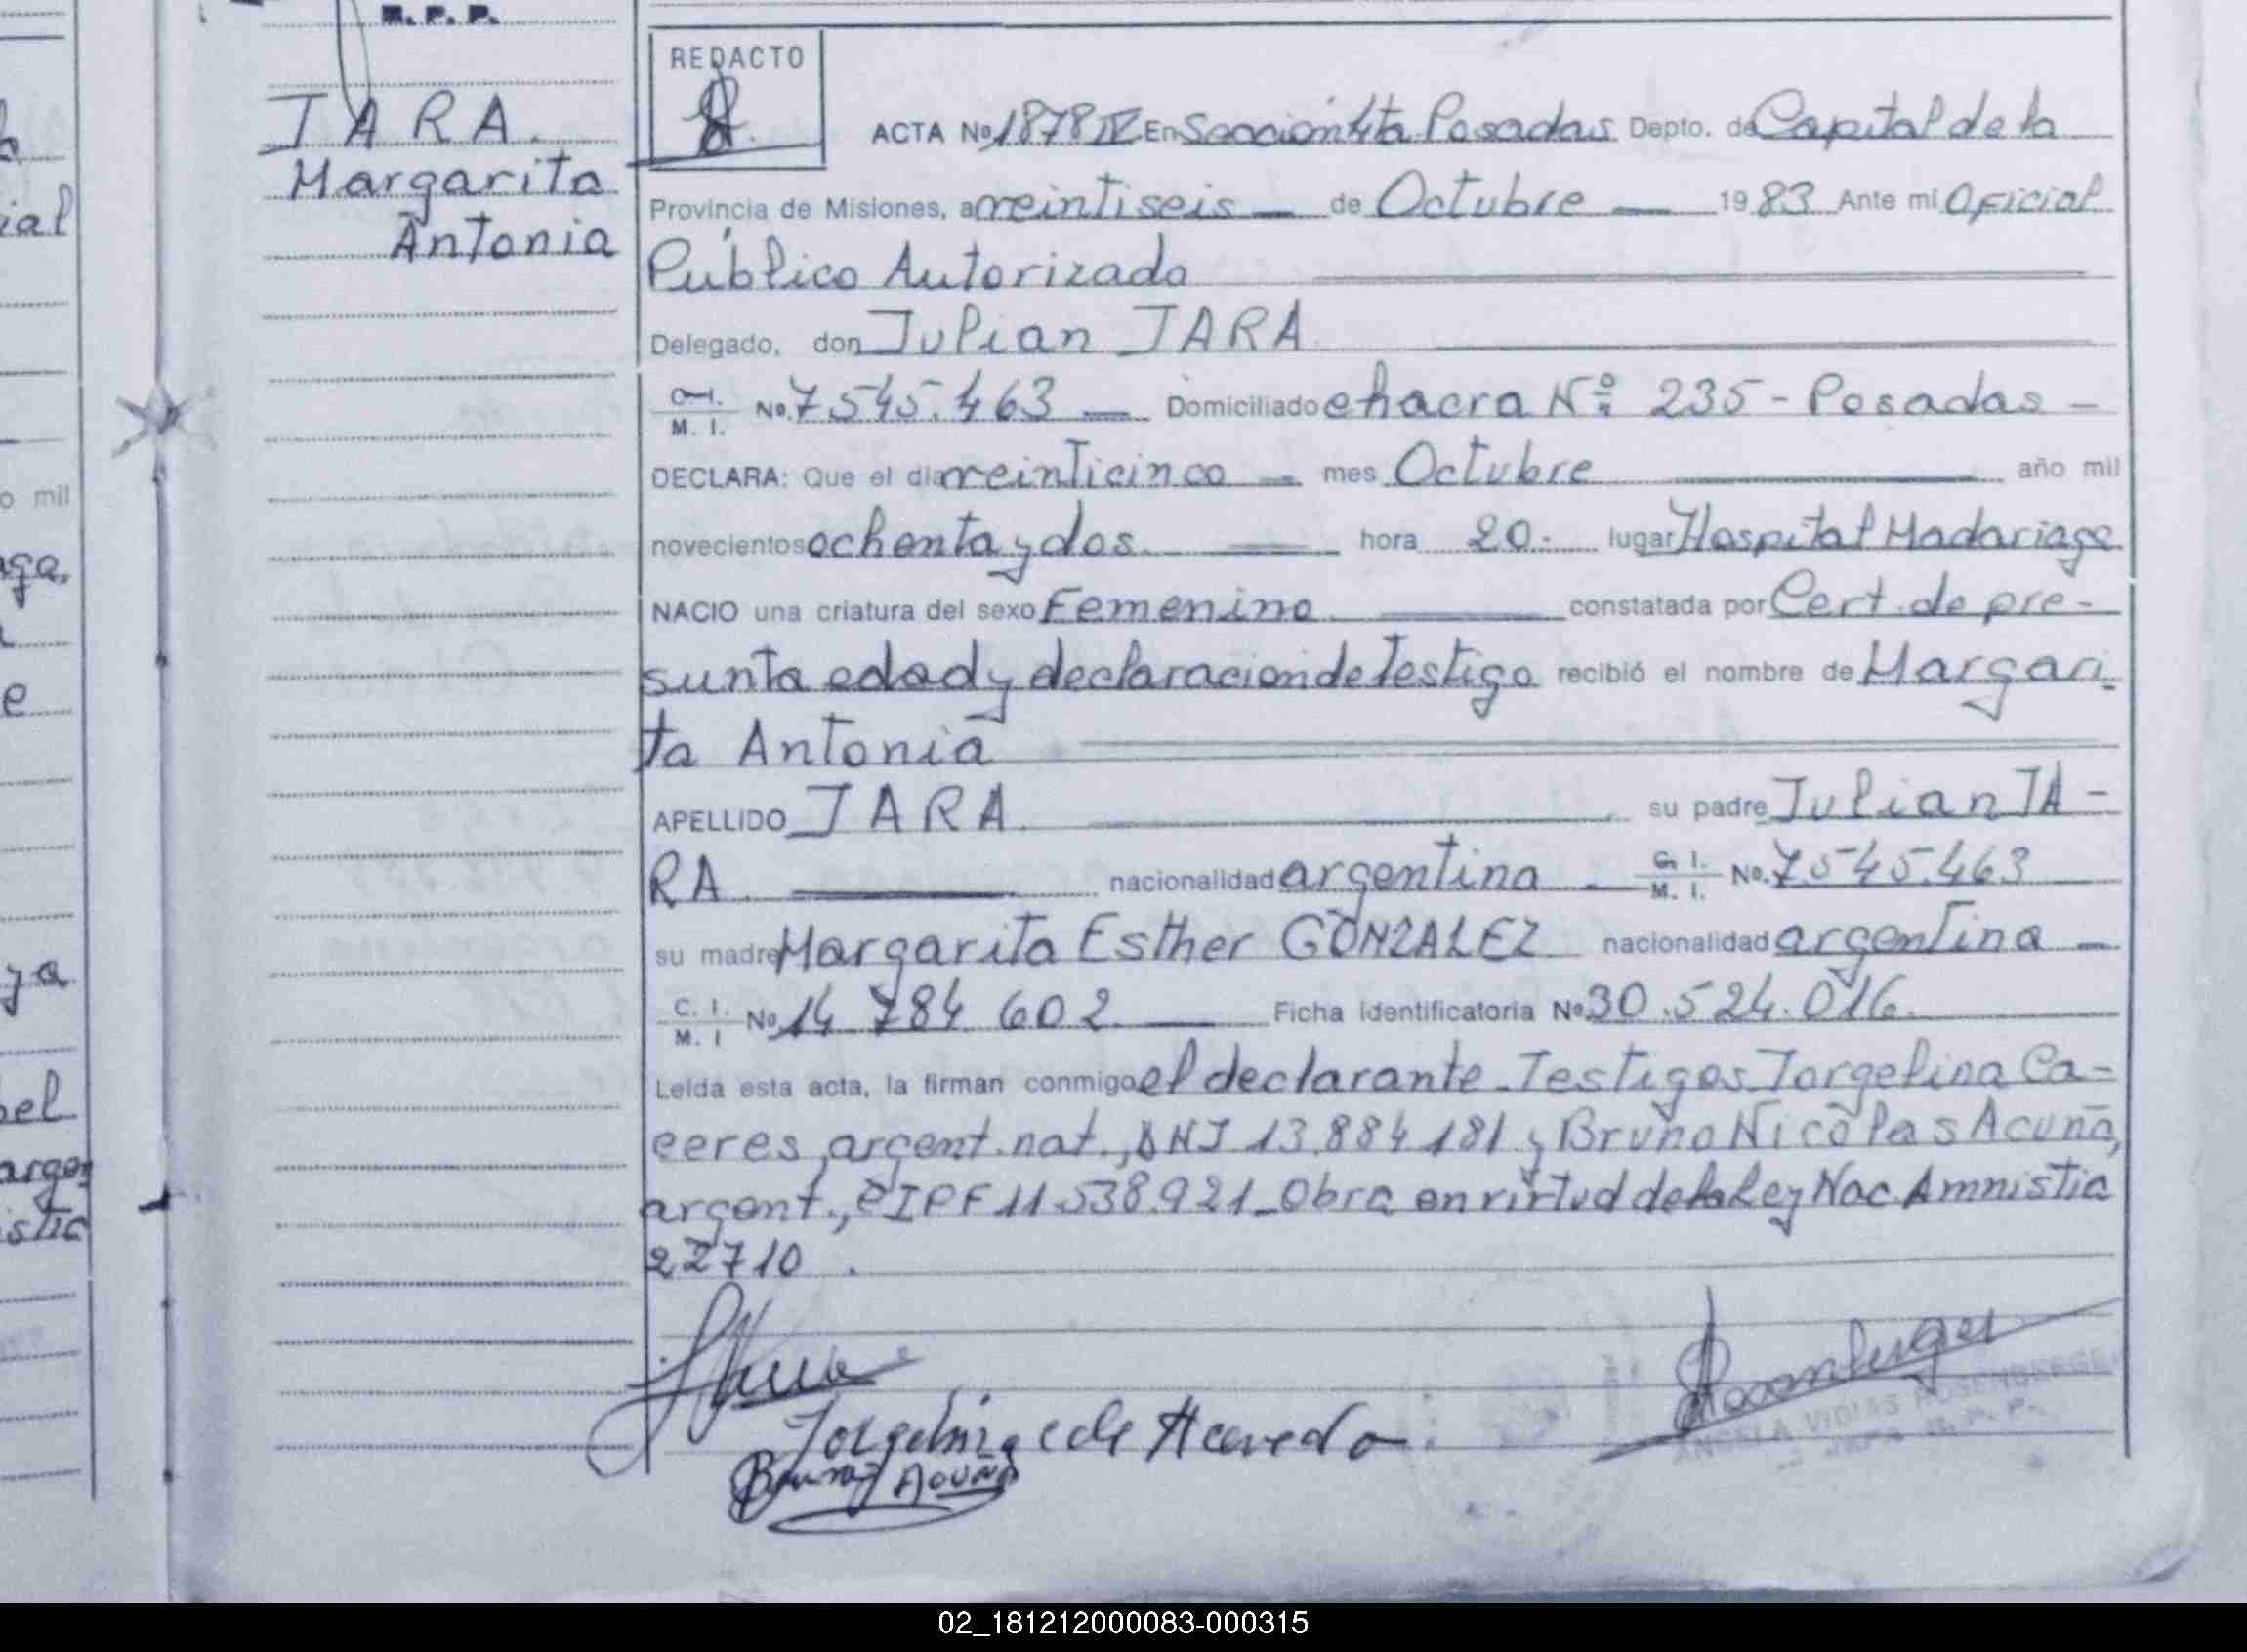 R. P. P.
JARA.
Margarita
Antonia
REDACTO
ACTA No 1878 IV En Sección 4ta Posadas Depto. de Capital de la
Provincia de Misiones, a veintiseis — de Octubre — 19 83 Ante mi Oficial
Público Autorizado
Delegado, don Julian JARA
C. I.
M. I. No. 7.545.463 — Domiciliado chacra Nº 235 - Posadas -
DECLARA: Que el día veinticinco — mes Octubre año mil
novecientos ochenta y dos hora 20. lugar Hospital Madariaga
NACIO una criatura del sexo Femenino constatada por Cert. de pre-
sunta edad y declaracion de Testigo recibió el nombre de Margari-
ta Antonia
APELLIDO JARA su padre Julian JA-
RA. nacionalidad argentina — C. I.
M. I. No. 7.545.463
su madre Margarita Esther GONZALEZ nacionalidad argentina —
C. I.
M. I No 14 784 602 — Ficha identificatoria No 30.524.016.
Leída esta acta, la firman conmigo el declarante - Testigos Jorgelina Ca-
ceres, argent. nat., DNI 13.884.181 y Bruno Nicolas Acuña,
argent., CIPF 11.538.921 - Obra en virtud de la Ley Nac Amnistia
22710.
Jorgelina C de Acevedo
Bruno Acuña
Rosemberger
ANGELA VIDIAS
R. P. P.
o mil
e
ya
bel
02_181212000083-000315